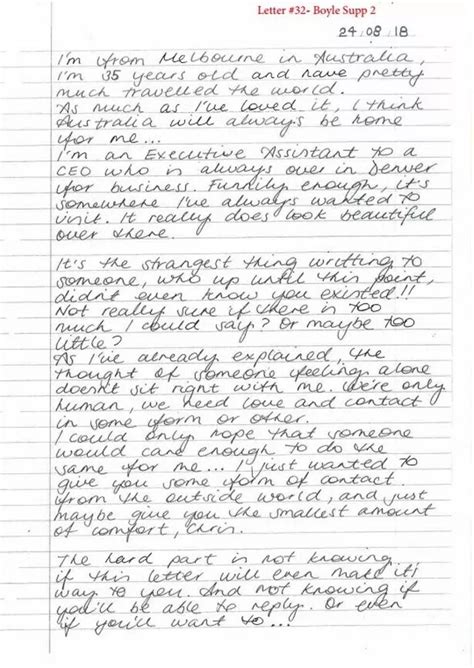 Letter #32- Boyle Supp 2
24/08/18
I'm from Melbourne in Australia,
I'm 35 years old and have pretty
much travelled the world.
As much as I've loved it, I think
Australia will always be home
for me...
I'm an Executive Assistant to a
CEO who is always over in Denver
for business. Funnily enough, it's
somewhere I've always wanted to
visit. It really does look beautiful
over there.
It's the strangest thing writting to
someone, who up until this point,
didn't even know you existed!!
Not really sure if there is too
much I could say? Or maybe too
little?
As I've already explained, the
thought of someone feeling alone
doesn't sit right with me. We're only
human, we need love and contact
in some form or other.
I could only hope that someone
would care enough to do the
same for me... I just wanted to
give you some form of contact
from the outside world, and just
maybe give you the smallest amount
of comfort, Chris.
The hard part is not knowing
if this letter will even make it's
way to you. And not knowing if
you'll be able to reply. Or even
if you'll want to...